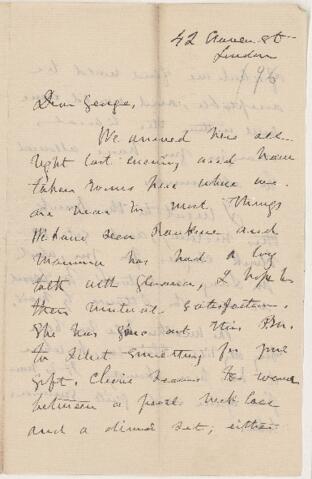 42 Craven St
London
Dear George,
We arrived here all-
right last evening, and have
taken rooms here where we
are near to most things
We have seen and
Mamma has had a long
talk with I hope to
their mutual satisfaction.
She has gone out this
to select something for your
gift. Choice seems to waver
between a pearl necklace
and a dinner set; either